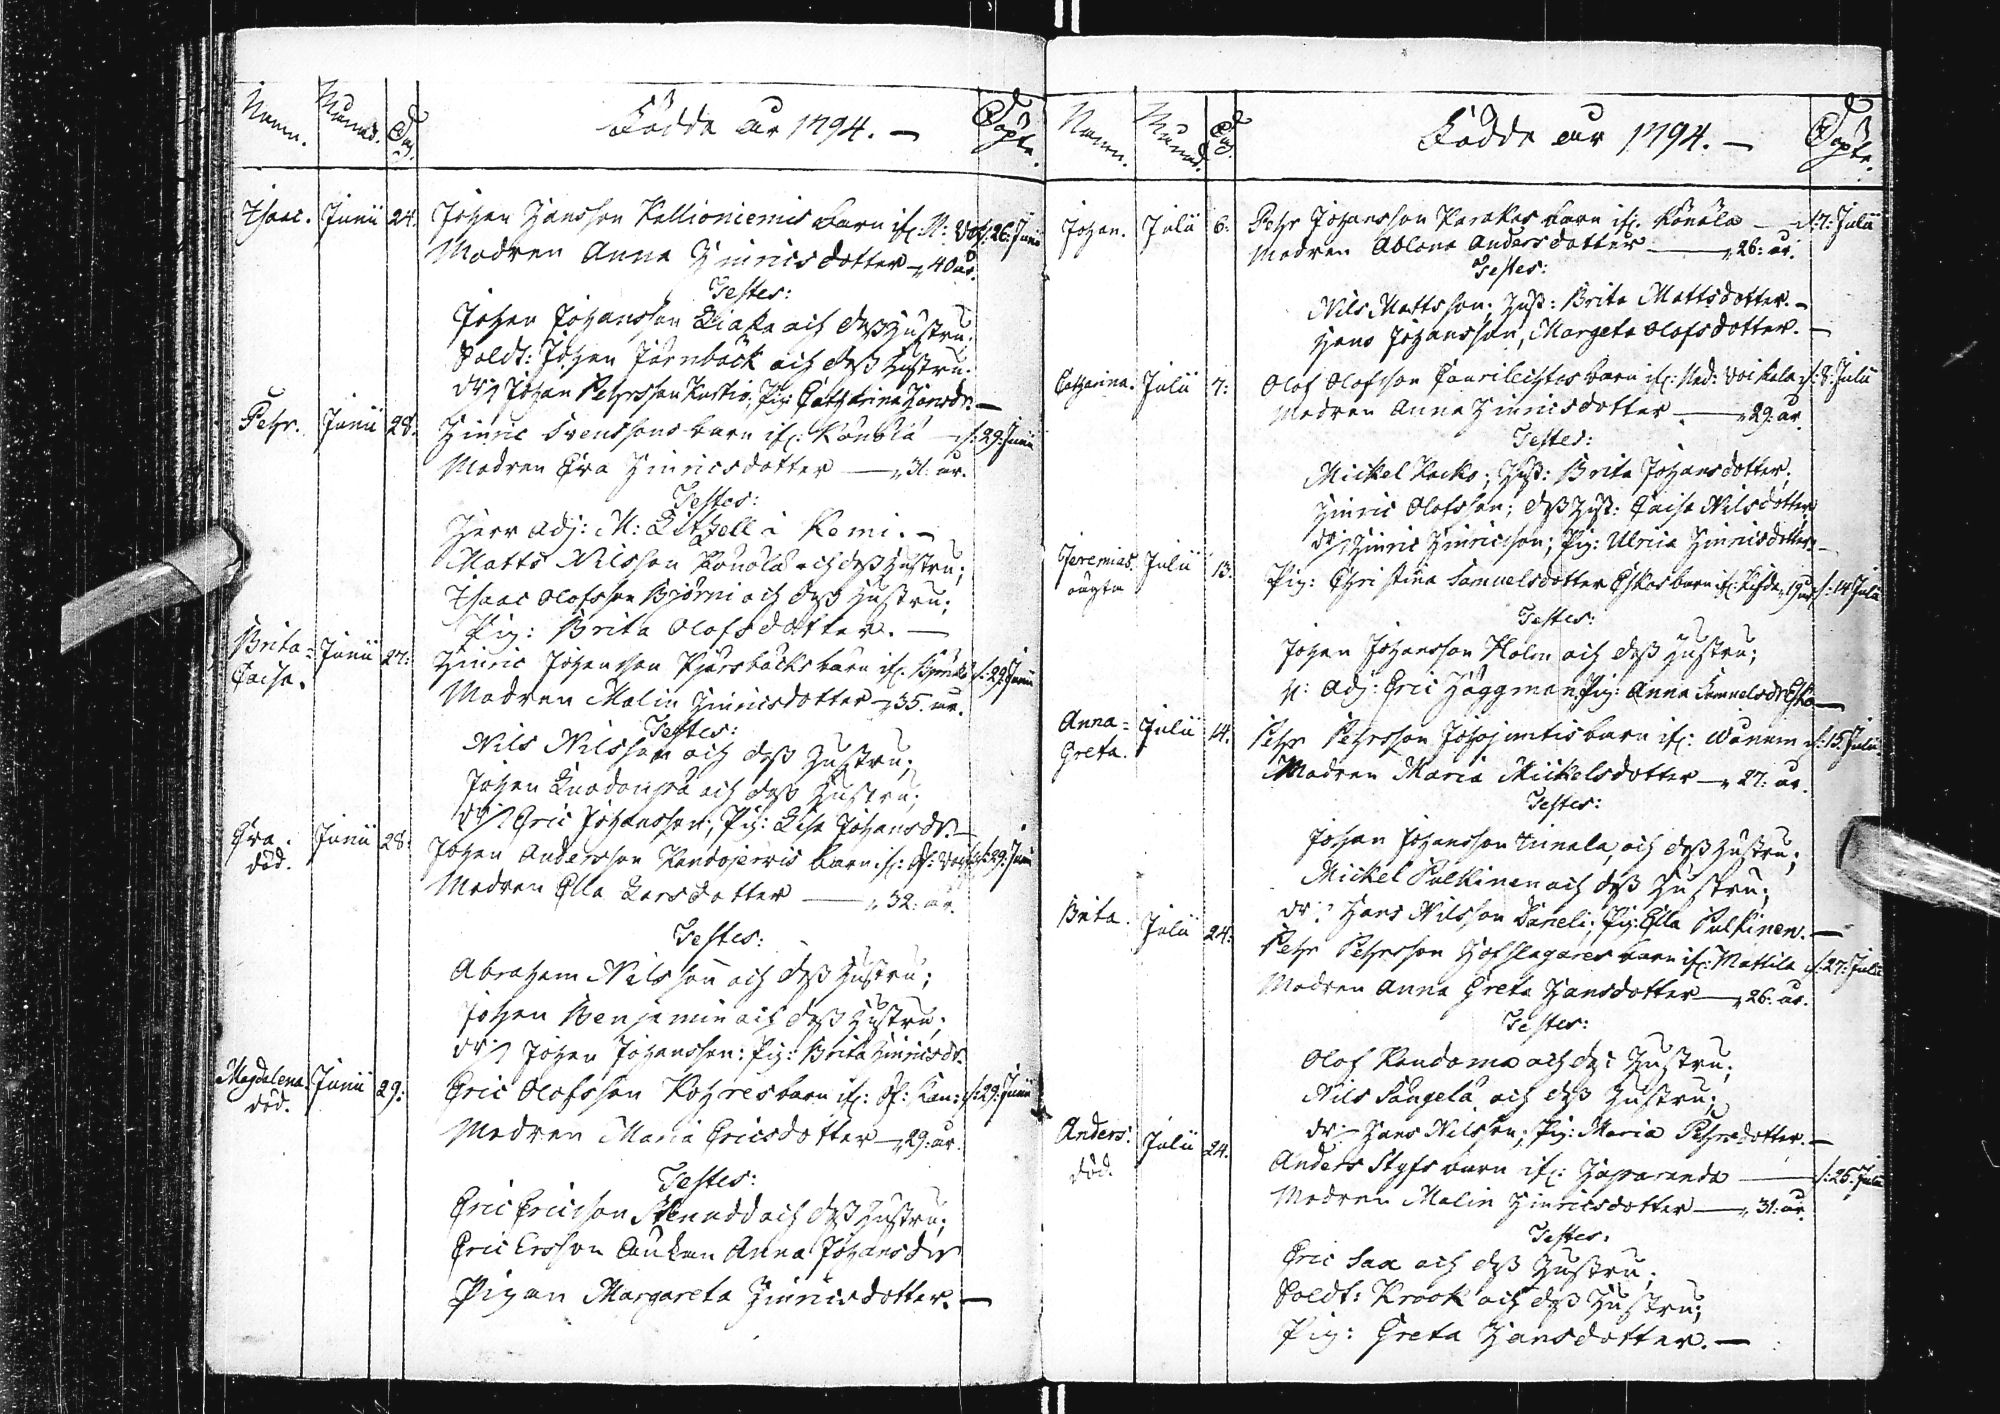 Namn. Månad. Dag. Födde år 1794. — Döpte.
Isaac. Junii 24. Johan Hansson Kallioniemis barn if: N: Voj. 26: Junii
Modren Anna Hinricsdotter — 40 år.
Testes:
Johan Johansson Liaka och dess hustru.
Soldt: Johan Jernbäck och dess hustru.
dr: Johan Pehrsson Kurtio, Pig: Catharina Hansdr. —
Pehr. Junii 28. Hinric Svenssons barn if: Könölä — d: 29: Junii
Modren Eva Hinricsdotter — 31: år.
Testes:
Herr Adj: M: Litzell i Kemi. —
Matts Nilsson Könölä och dess hustru;
Isaac Olofsson Björni och dess hustru;
Pig: Brita Olofsdotter. —
Brita= Junii 27: Hinric Johansson barn if: d: 29: Junii
Caisa.
Modren Malin Hinricsdotter — 35. år.
Testes:
Nils Nilsson och dess hustru;
Johan och dess hustru;
dr: Eric Johansson; Pig: Lisa Johansdr. —
Eva. Junii 28: Johan Andersson Kandojervis barn if: d: 29: Junii
död.
Modren Ella Larsdotter — 32: år.
Testes:
Abraham Nilsson och dess hustru;
Johan Benjamin och dess hustru;
dr: Johan Johansson: Pig: Brita Hinricsdr.
Magdalena. Junii 29: Eric Olofsson Kohres barn if: d: 29: Junii
död.
Modren Maria Ericsdotter — 29: år.
Testes:
Eric Ericsson och dess hustru;
Eric Ersson Anna Johansdr
Pigan Margareta Hinricsdotter. —
Namn. Månad. Dag. Födde år 1794. — Döpte.
Johan. Julii 6: Pehr Johansson Karakas barn if: Könölä — d: 7: Julii
Modren Ablona Andersdotter — 26: år.
Testes:
Nils Mattsson; Hust: Brita Mattsdotter. —
Hans Johansson, Margeta Olofsdotter. —
Catharina. Julii 7: Olof Olofsson Laurilehtos barn if: Ned: Voikala d: 8: Julii
Modren Anna Hinricsdotter — 29. år.
Testes:
Mickel Kacko; Hust: Brita Johansdotter;
Hinric Olofsson; dess hust: Caisa Nilsdotter
dr: Hinric Hinricsson; Pig: Ulrica Hinricsdotter —
Jeremias Julii 13. Pig: Christina Samuelsdotter Eskos barn if: 19 år d: 14 Julii
oägta
Testes:
Johan Johansson Holm och dess hustru;
H: Adj: Eric Häggman, Pig: Anna Samuelsdr Esko —
Anna= Julii 14. Pehr Pehrsson barn if: d: 15: Julii
Greta.
Modren Maria Mickelsdotter — 27: år.
Testes:
Johan Johansson och dess hustru;
Mickel Pulkinen och dess hustru;
dr: Hans Nilsson Daneli; Pig: Ella Pulkinen. —
Brita. Julii 24: Pehr Pehrsson Hofslagares barn if: Mattila d: 27: Julii
Modren Anna Greta Hansdotter — 26. år.
Testes:
Olof Kandama och dess hustru;
Nils Sangela och dess hustru;
dr: Hans Nilsson; Pig: Maria Pehrsdotter. —
Anders. Julii 24. Anders Styfs barn if: Haparanda — d: 25. Julii
död.
Modren Malin Hinricsdotter — 31: år.
Testes:
Eric Sax och dess hustru;
Soldt: Krook och dess hustru;
Pig: Greta Hansdotter. —